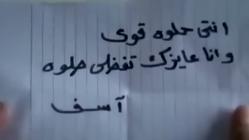 انتى حلوه قوى
وانا عايزك تفضلى حلوه
آسف